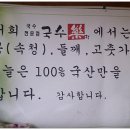 저희 국수전문점 국수 에서는
(속천), 들깨, 고춧가
늘은 100% 국산만을
합니다. 감사합니다.